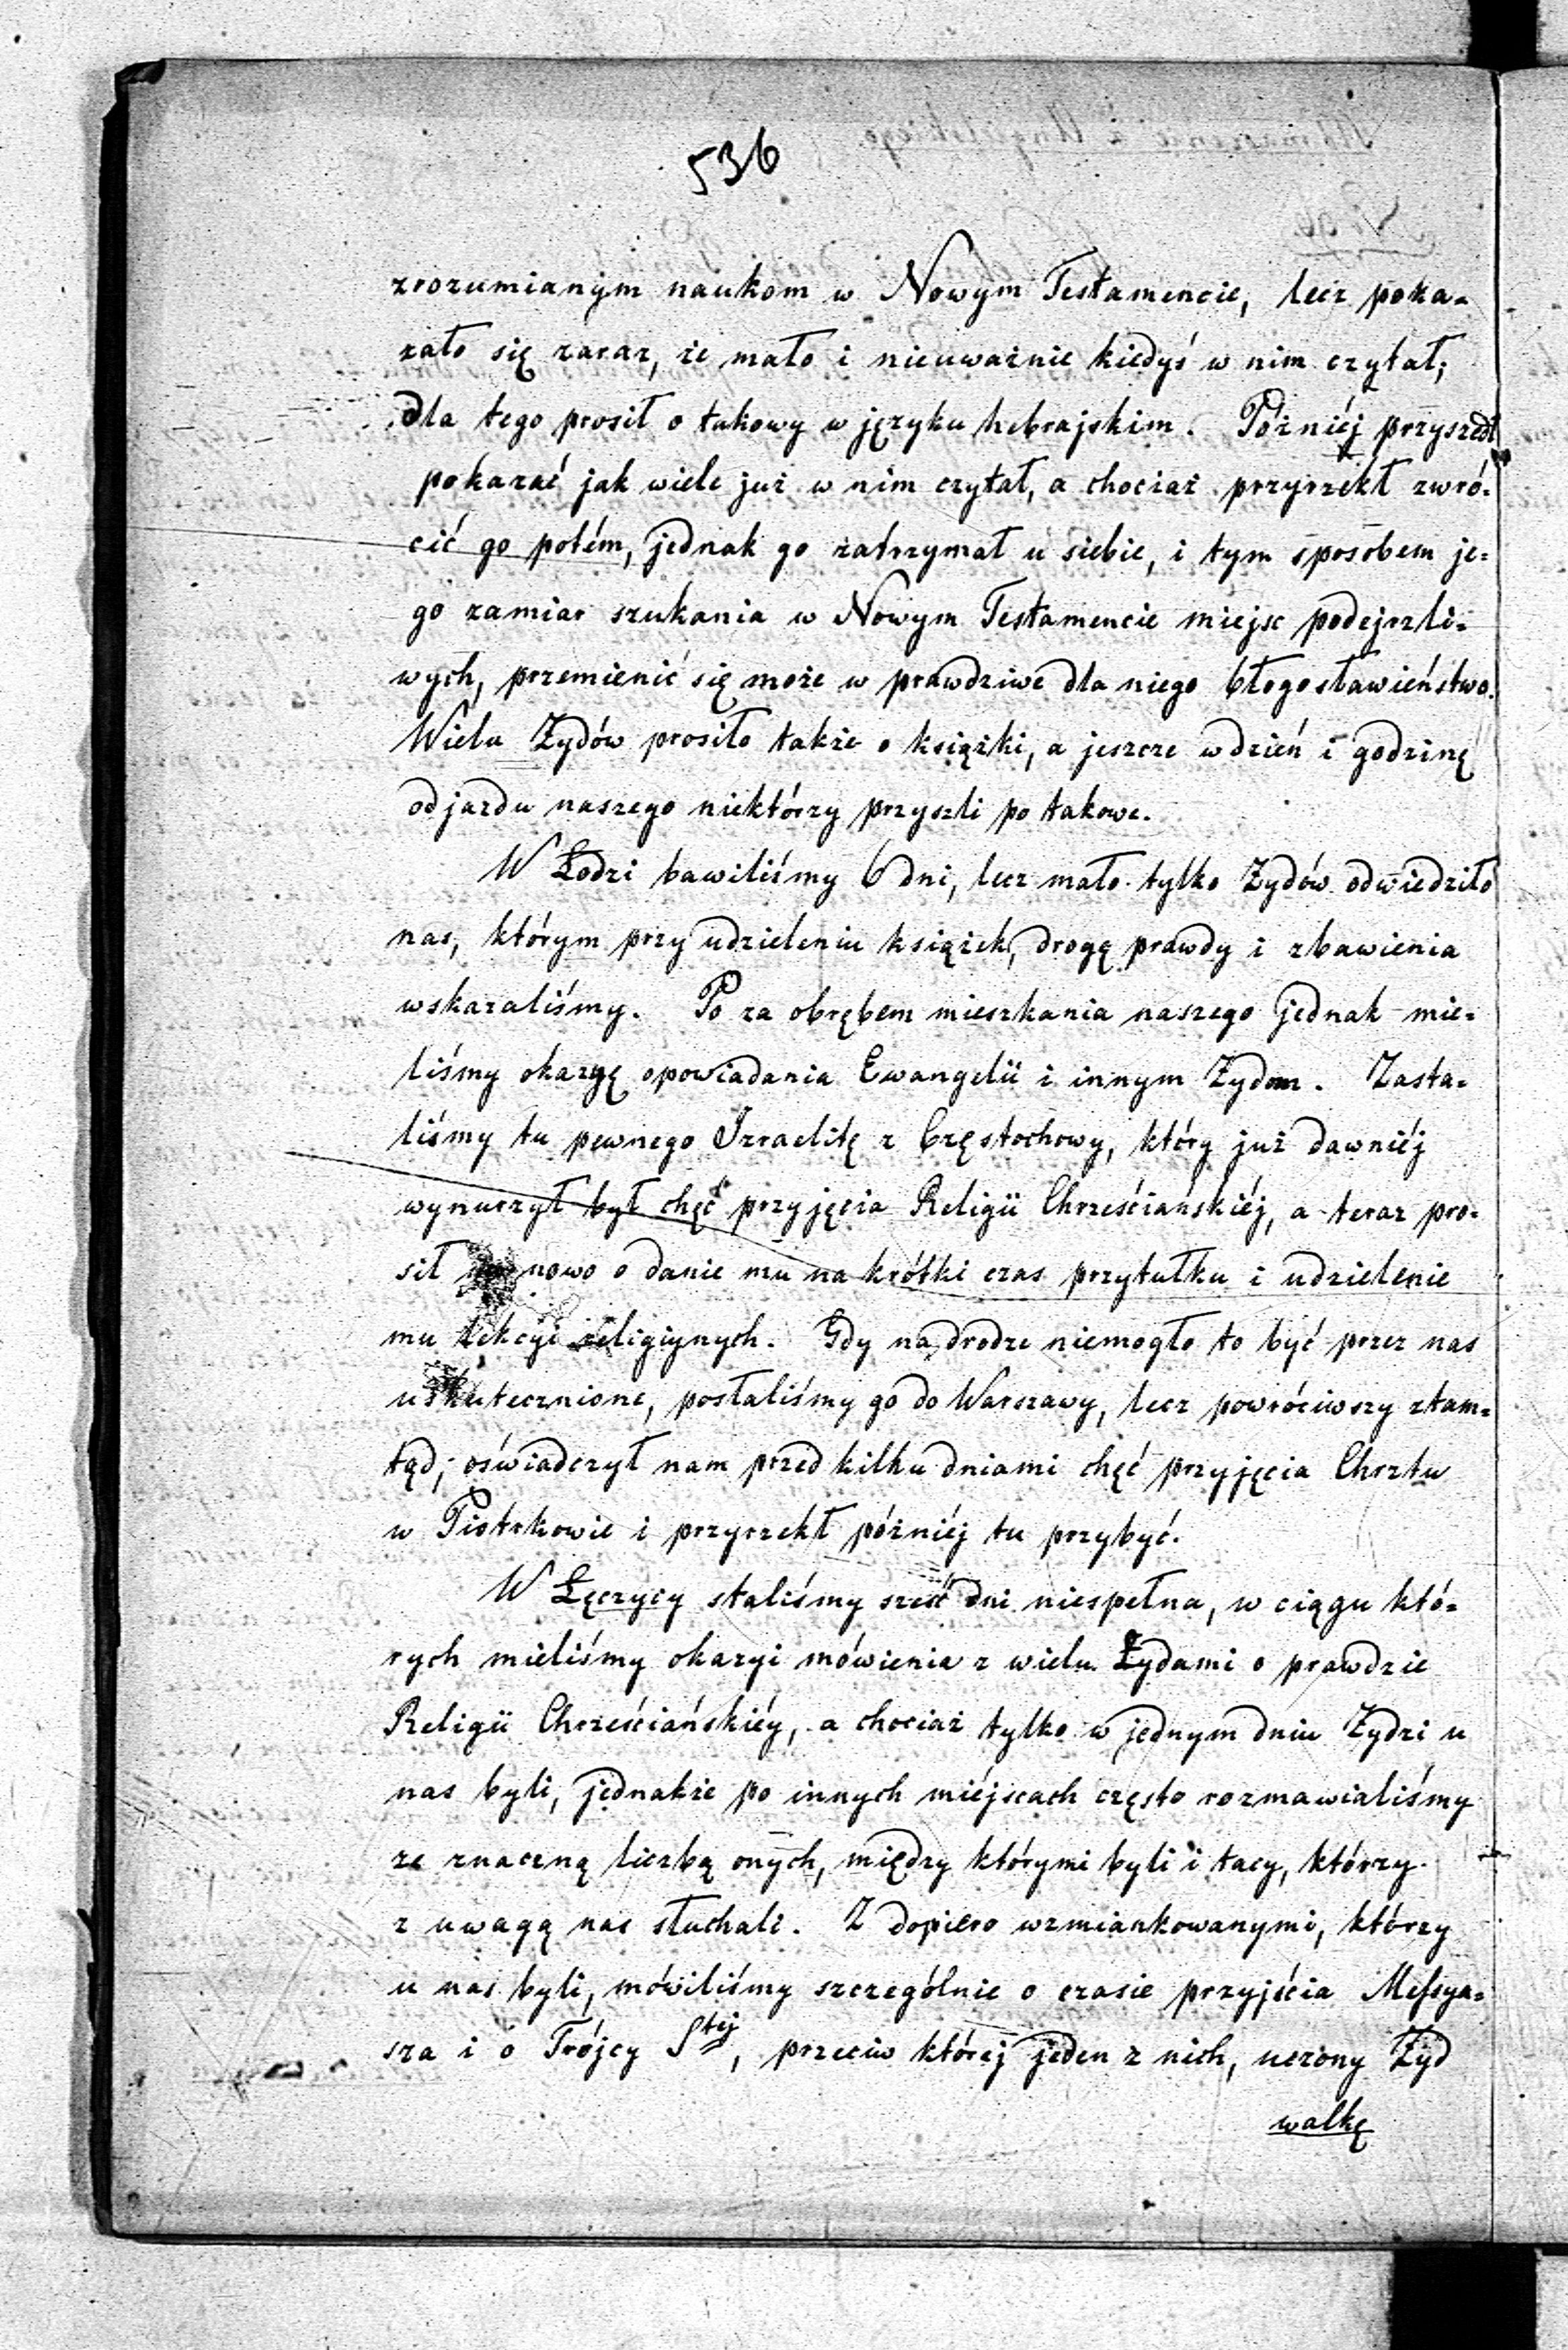 536
zrozumianym naukom w Nowym Testamencie, lecz poka-
zało się zaraz, że mało i nieuważnie kiedyś w nim czytał;
dla tego prosił o takowy w języku hebrajskim. Późniéj przyszedł
pokazać jak wiele już w nim czytał, a chociaż przyrzekł zwró-
cić go potém, jednak go zatrzymał u siebie, i tym sposobem je-
go zamiar szukania w Nowym Testamencie miejsc podejrzli-
wych, przemienić się może w prawdziwe dla niego błogosławieństwo.
Wielu Żydów prosiło także o książki, a jeszcze w dzień i godzinę
odjazdu naszego niektórzy przyszli po takowe.
W Łodzi bawiliśmy 6 dni, lecz mało tylko Żydów odwiedziło
nas, którym przy udzieleniu książek, drogę prawdy i zbawienia
wskazaliśmy. Po za obrębem mieszkania naszego jednak mie-
liśmy okazyę opowiadania Ewangelii i innym Żydom. Zasta-
liśmy tu pewnego Izraelitę z Częstochowy, który już dawniéj
wynurzył był chęć przyjęcia Religii Chrześciańskiéj, a teraz pro-
sił nowo o danie mu na krótki czas przytułku i udzielenie
mu lekcyi religiynych. Gdy na drodze niemogło to być przez nas
uskutecznione, posłaliśmy go do Warszawy, lecz powróciwszy ztam-
tąd, oświadczył nam przed kilku dniami chęć przyjęcia Chrztu
w Piotrkowie i przyrzekł późniéj tu przybyć.
W Łęczycy staliśmy sześć dni niespełna, w ciągu któ-
rych mieliśmy okazyi mówienia z wielu Żydami o prawdzie
Religii Chrześciańskiéy, a chociaż tylko w jednym dniu Żydzi u
nas byli, jednakże po innych miéjscach często rozmawialiśmy
ze znaczną liczbą onych, między którymi byli i tacy, którzy
z uwagą nas słuchali. Z dopiero wzmiankowanymi, którzy
u nas byli, mówiliśmy szczególnie o czasie przyjścia Meſsya-
sza i o Trójcy Stéj, przeciw któréj jeden z nich, uczony Żyd
walkę